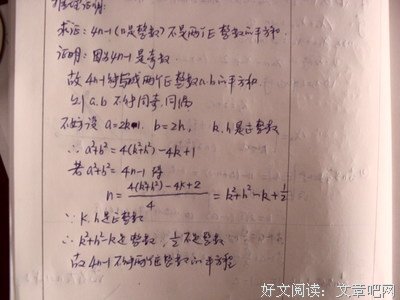 求证: 4n-1(n是整数)不是两个正整数的平方和.
证明: 因为4n-1是奇数.
故 4n-1 a.b的平方和
则 a.b 不能同奇.同偶
不妨设 a=2k-1. b=2h, k.h是正整数
∴ a²+b²=4(k²+h²)-4k+1
若 a²+b²=4n-1 得
n=4(k²+h²)-4k+2/4=k²+h²-k+1/2
∵ k.h是正整数
∴ k²+h²-k是整数, 1/2不是整数
故 4n-1 不 两个正整数的平方和
好文阅读：文章吧网